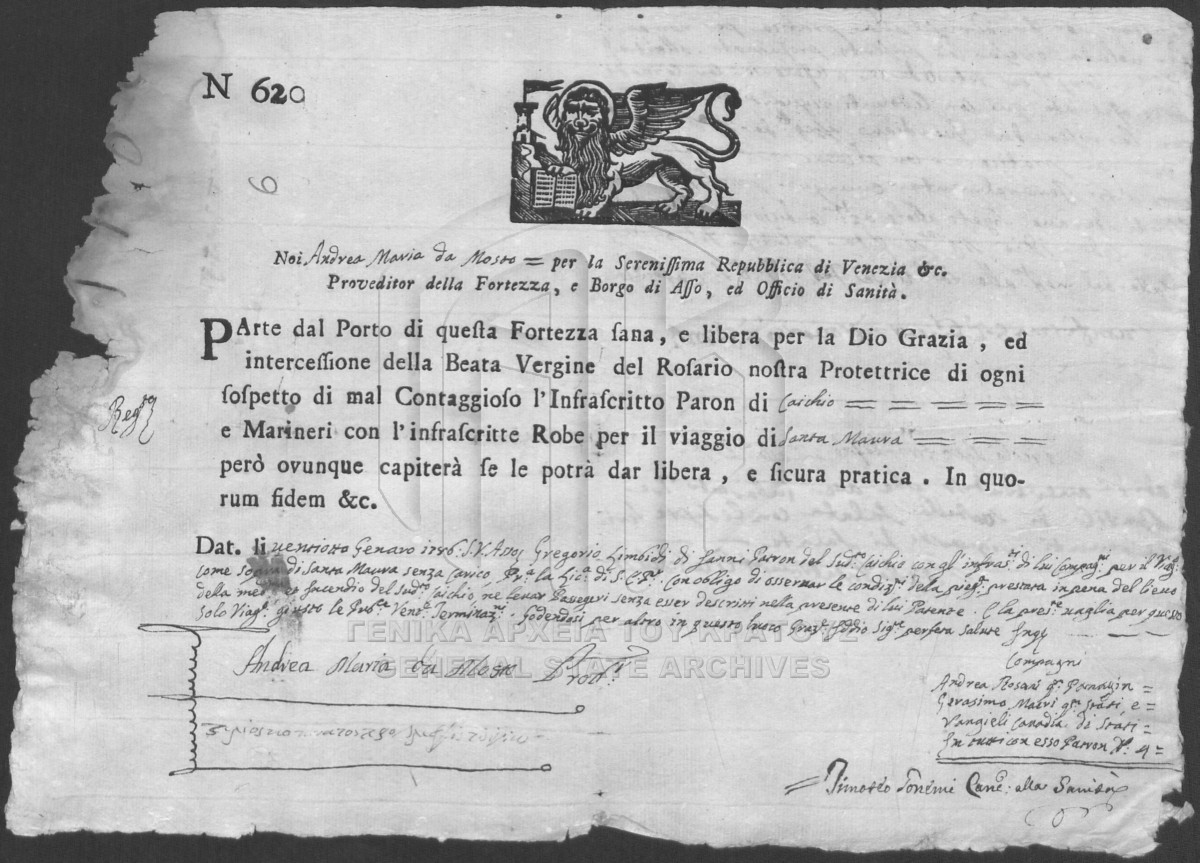 N 620
6
Noi Andrea Maria da Mosto = per la Serenissima Repubblica di Venezia &c.
Proveditor della Fortezza, e Borgo di Asso, ed Officio di Sanità.
PArte dal Porto di questa Fortezza sana, e libera per la Dio Grazia, ed
intercessione della Beata Vergine del Rosario nostra Protettrice di ogni
sospetto di mal Contaggioso l'Infrascritto Paron di Caichio = = = = =
Regta
e Marineri con l'infrascritte Robe per il viaggio di Santa Maura = = = =
però ovunque capiterà se le potrà dar libera, e sicura pratica. In quo-
rum fidem &c.
Dat. li ventiotto Genaro 1786. S.V. Asso Gregorio di Patron del Sudto Caichio con gl'infrasti di lui Compagni per il Viago
come sopra di Santa Maura senza Carico. Con obligo di osservar le condizni della prestata in pena del
della et Incendio del Sudto Caichio, ne levar Passegeri senza esser descritti nella presente di lui Patente. E la presente vaglia per questo
solo Viago giusto le Terminazni. Godendosi per altro in questo luoco Grazie Iddio Sigre perfetta Salute
ΓΕΝΙΚΑ ΑΡΧΕΙΑ ΤΟΥ ΚΡΑΤΟΥΣ
Andrea Maria da Mosto Prodr
GENERAL STATE ARCHIVES
Compagni
Andrea =
Gerasimo Mauri Stati e =
Vangieli di Stati =
In tutti con esso Patron No: 4 =
= Timoteo Cance: alla Sanità